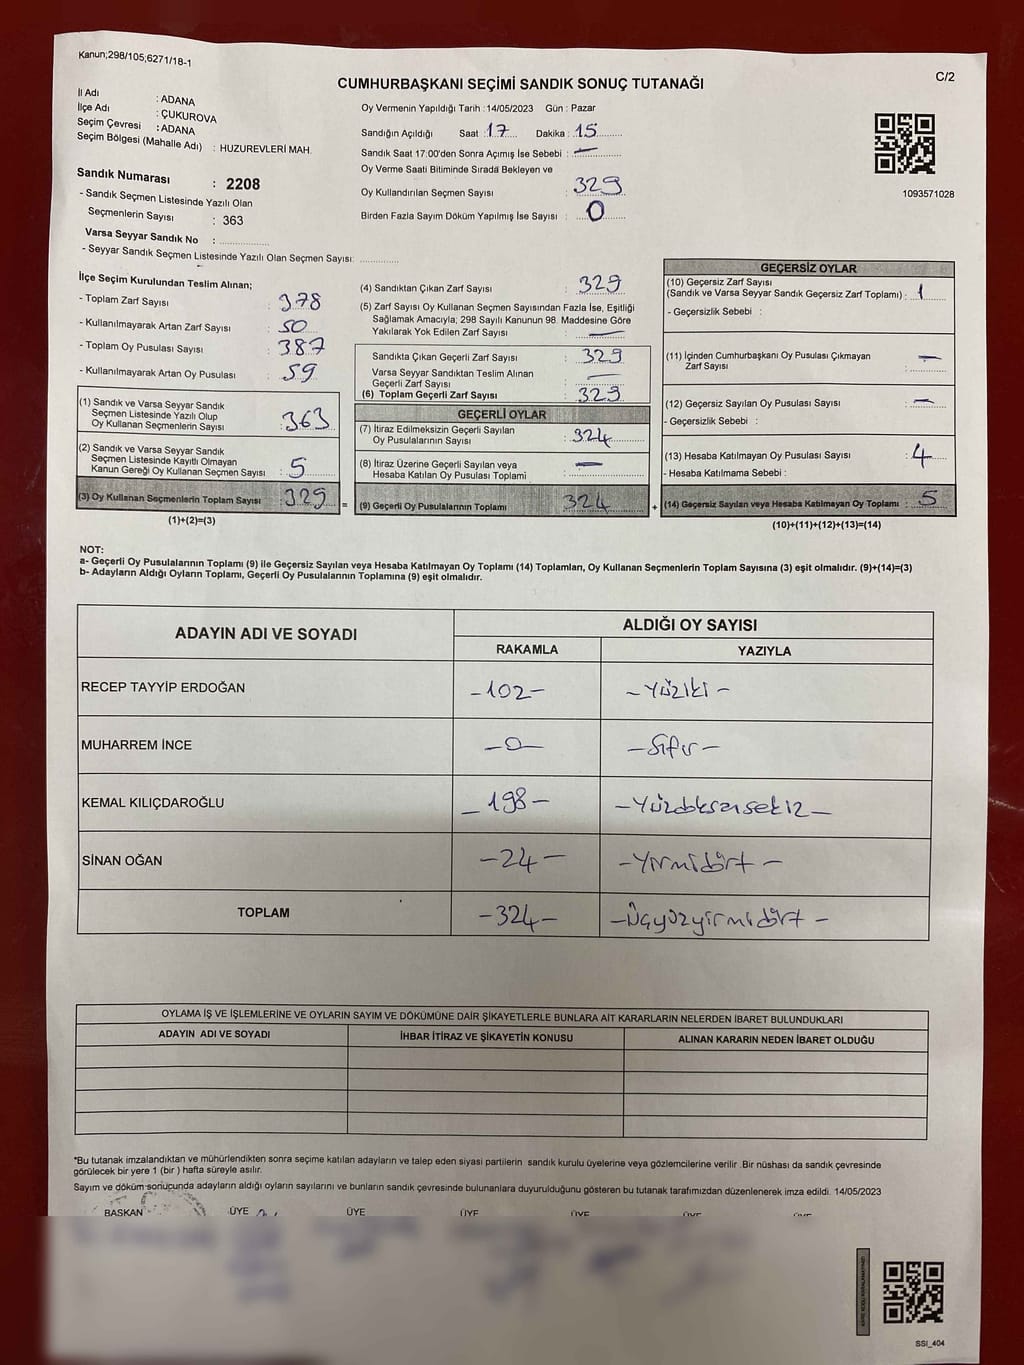 Kanun;298/105;6271/18-1
C/2
CUMHURBAŞKANI SEÇİMİ SANDIK SONUÇ TUTANAĞI
İl Adı : ADANA
İlçe Adı : ÇUKUROVA
Seçim Çevresi : ADANA
Seçim Bölgesi (Mahalle Adı) : HUZUREVLERİ MAH.
Sandık Numarası : 2208
- Sandık Seçmen Listesinde Yazılı Olan
Seçmenlerin Sayısı : 363
Varsa Seyyar Sandık No :
- Seyyar Sandık Seçmen Listesinde Yazılı Olan Seçmen Sayısı:
Oy Vermenin Yapıldığı Tarih :14/05/2023 Gün : Pazar
Sandığın Açıldığı Saat : 17 Dakika : 15
Sandık Saat 17:00'den Sonra Açımış İse Sebebi : —
Oy Verme Saati Bitiminde Sırada Bekleyen ve
Oy Kullandırılan Seçmen Sayısı : 329
Birden Fazla Sayım Döküm Yapılmış İse Sayısı : 0
1093571028
İlçe Seçim Kurulundan Teslim Alınan;
- Toplam Zarf Sayısı : 378
- Kullanılmayarak Artan Zarf Sayısı : 50
- Toplam Oy Pusulası Sayısı : 387
- Kullanılmayarak Artan Oy Pusulası : 59
(1) Sandık ve Varsa Seyyar Sandık
Seçmen Listesinde Yazılı Olup
Oy Kullanan Seçmenlerin Sayısı : 363
(2) Sandık ve Varsa Seyyar Sandık
Seçmen Listesinde Kayıtlı Olmayan
Kanun Gereği Oy Kullanan Seçmen Sayısı : 5
(3) Oy Kullanan Seçmenlerin Toplam Sayısı : 329
(1)+(2)=(3)
(4) Sandıktan Çıkan Zarf Sayısı : 329
(5) Zarf Sayısı Oy Kullanan Seçmen Sayısından Fazla İse, Eşitliği
Sağlamak Amacıyla; 298 Sayılı Kanunun 98. Maddesine Göre
Yakılarak Yok Edilen Zarf Sayısı : —
Sandıkta Çıkan Geçerli Zarf Sayısı : 329
Varsa Seyyar Sandıktan Teslim Alınan
Geçerli Zarf Sayısı : —
(6) Toplam Geçerli Zarf Sayısı : 329
GEÇERLİ OYLAR
(7) İtiraz Edilmeksizin Geçerli Sayılan
Oy Pusulalarının Sayısı : 324
(8) İtiraz Üzerine Geçerli Sayılan veya
Hesaba Katılan Oy Pusulası Toplamı : —
= (9) Geçerli Oy Pusulalarının Toplamı : 324
GEÇERSİZ OYLAR
(10) Geçersiz Zarf Sayısı
(Sandık ve Varsa Seyyar Sandık Geçersiz Zarf Toplamı) : 1
- Geçersizlik Sebebi :
(11) İçinden Cumhurbaşkanı Oy Pusulası Çıkmayan
Zarf Sayısı : —
(12) Geçersiz Sayılan Oy Pusulası Sayısı : —
- Geçersizlik Sebebi :
(13) Hesaba Katılmayan Oy Pusulası Sayısı : 4
- Hesaba Katılmama Sebebi :
+ (14) Geçersiz Sayılan veya Hesaba Katılmayan Oy Toplamı : 5
(10)+(11)+(12)+(13)=(14)
NOT:
a- Geçerli Oy Pusulalarının Toplamı (9) ile Geçersiz Sayılan veya Hesaba Katılmayan Oy Toplamı (14) Toplamları, Oy Kullanan Seçmenlerin Toplam Sayısına (3) eşit olmalıdır. (9)+(14)=(3)
b- Adayların Aldığı Oyların Toplamı, Geçerli Oy Pusulalarının Toplamına (9) eşit olmalıdır.
ADAYIN ADI VE SOYADI
ALDIĞI OY SAYISI
RAKAMLA YAZIYLA
RECEP TAYYİP ERDOĞAN -102- -Yüziki-
MUHARREM İNCE -0- -Sıfır-
KEMAL KILIÇDAROĞLU -198- -Yüzdoksansekiz-
SİNAN OĞAN -24- -Yirmidört-
TOPLAM -324- -Üçyüzyirmidört-
OYLAMA İŞ VE İŞLEMLERİNE VE OYLARIN SAYIM VE DÖKÜMÜNE DAİR ŞİKAYETLERLE BUNLARA AİT KARARLARIN NELERDEN İBARET BULUNDUKLARI
ADAYIN ADI VE SOYADI İHBAR İTİRAZ VE ŞİKAYETİN KONUSU ALINAN KARARIN NEDEN İBARET OLDUĞU
*Bu tutanak imzalandıktan ve mühürlendikten sonra seçime katılan adayların ve talep eden siyasi partilerin sandık kurulu üyelerine veya gözlemcilerine verilir .Bir nüshası da sandık çevresinde
görülecek bir yere 1 (bir ) hafta süreyle asılır.
Sayım ve döküm sonucunda adayların aldığı oyların sayılarını ve bunların sandık çevresinde bulunanlara duyurulduğunu gösteren bu tutanak tarafımızdan düzenlenerek imza edildi. 14/05/2023
BAŞKAN ÜYE ÜYE ÜYE ÜYE ÜYE
SSI_404